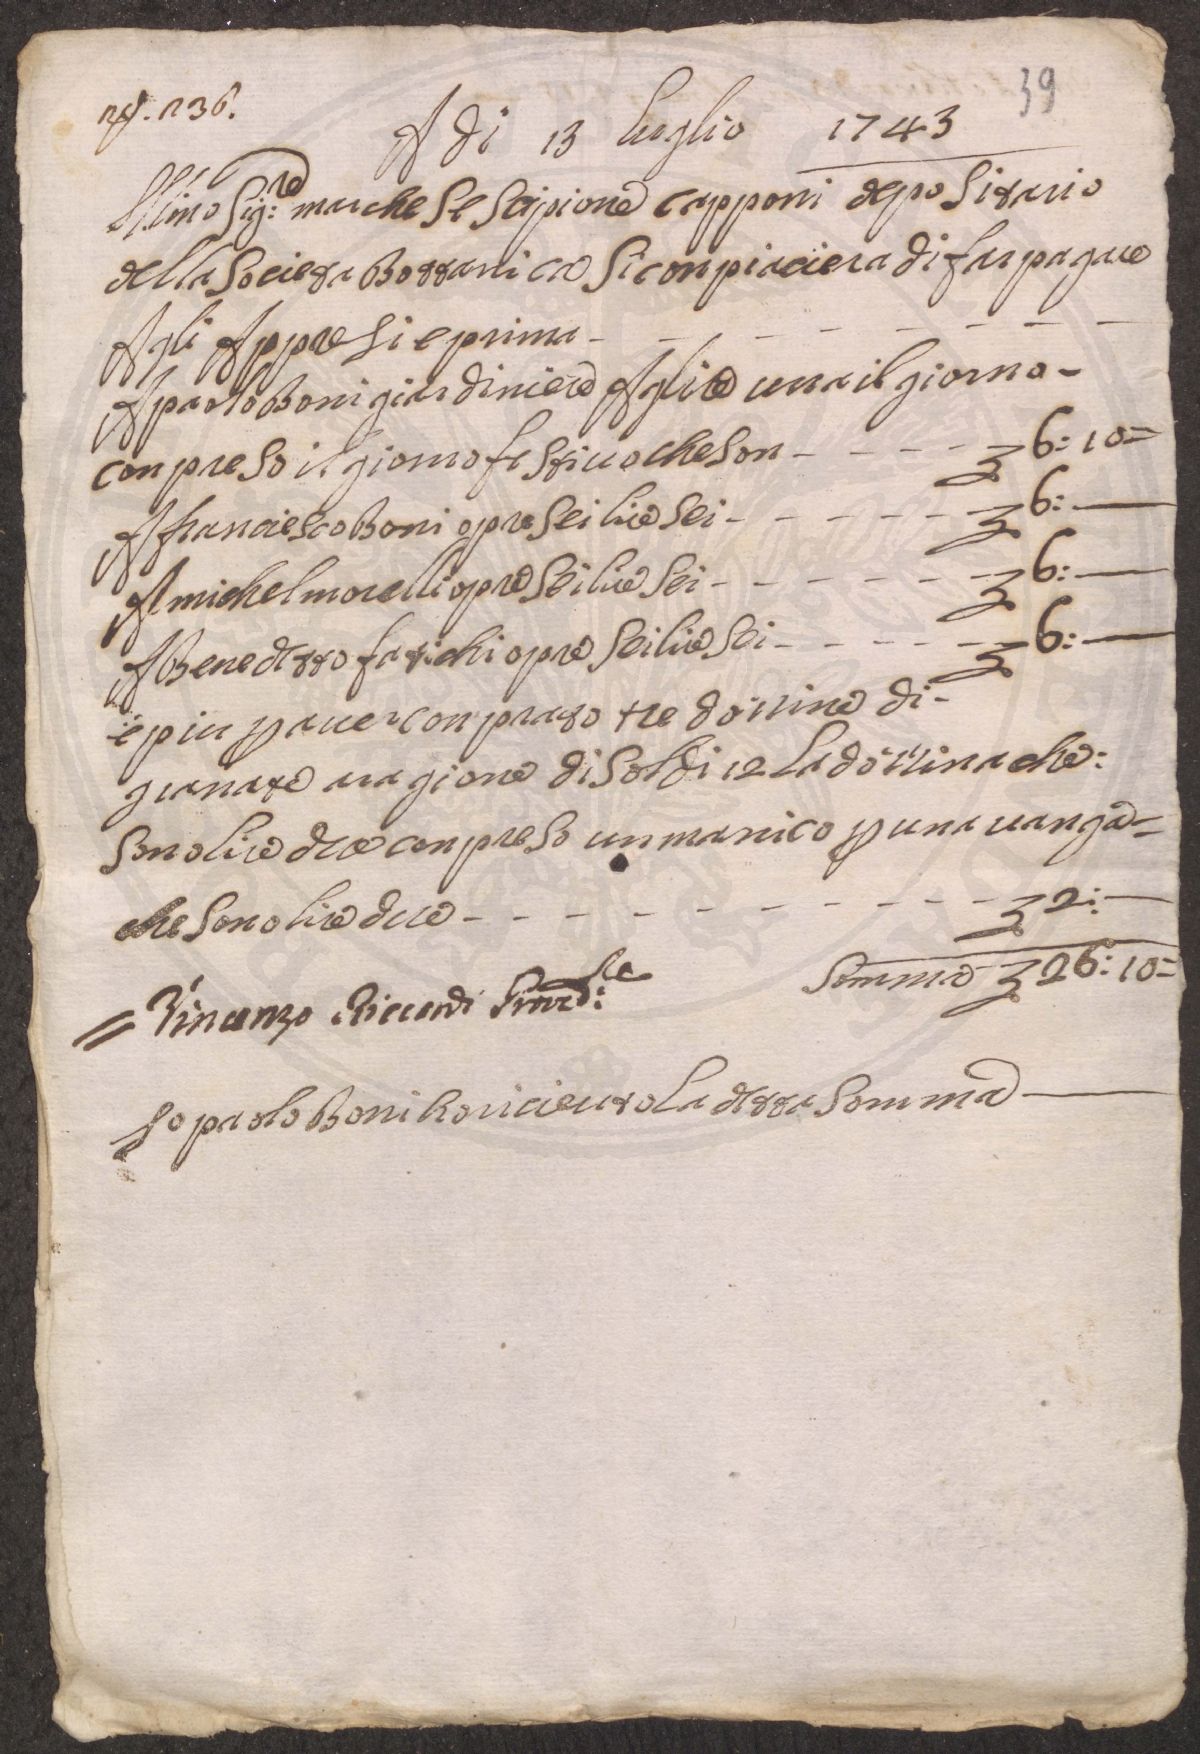 39
Adi 13 luglio 1743
Illmo Sig:re marchese Scipione capponi depositario
della Societa Bottanica Si conpiaciera di far pagare
Agli Appresi e prima
A paolo Boni giardiniere A lire una il giorno
conpreso il giorno festiuo che son 6: 10
A franciesco Boni opre Sei lire Sei 6:
A michel morelli opre Sei lire Sei 6:
A Benedetto fatichi opre Sei lire Sei 6:
e piu p auer conprato tre dozzine di
granate a ragione di Soldi 12 La dozzina che:
Sono lire due conpreso un manico p una uanga
che Sono lire due 2:
Somma 26: 10
Vincenzo Riccardi
Io paolo Boni ho riceuto La detta Somma